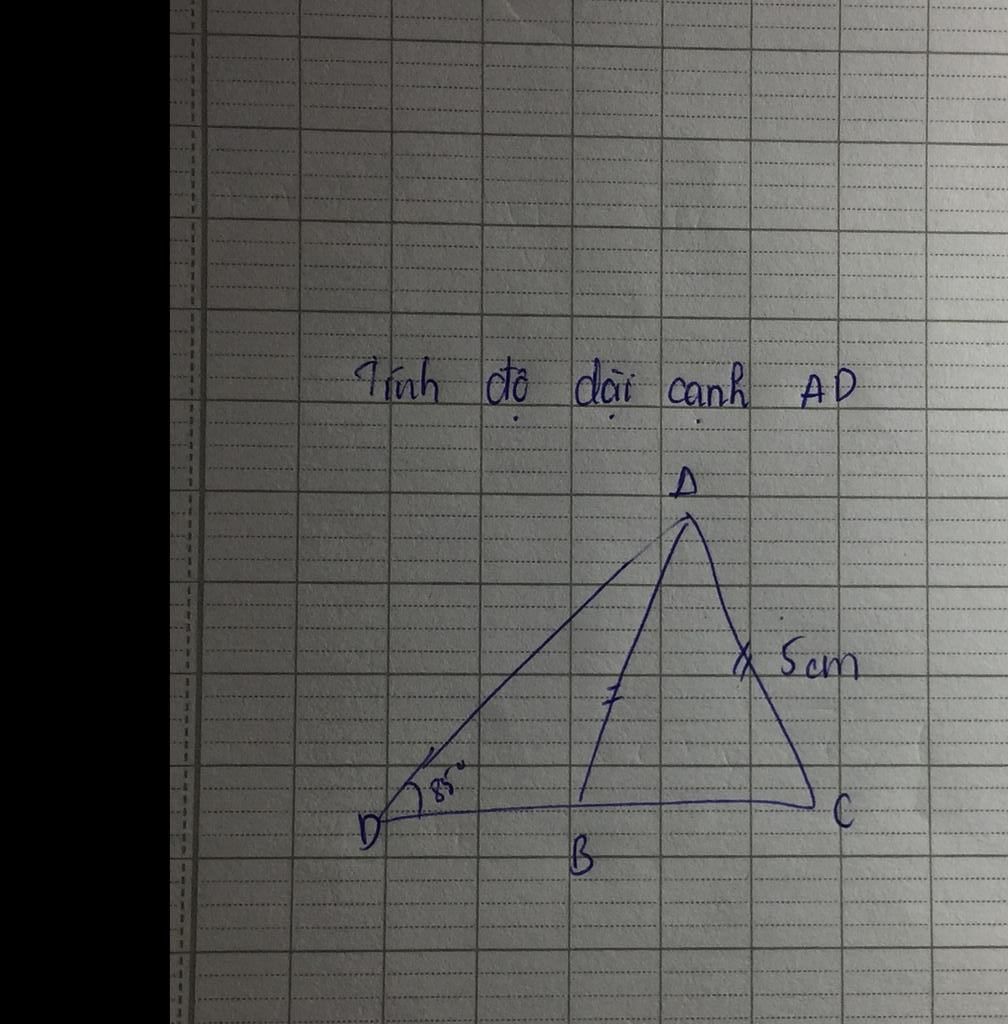 Tính độ dài cạnh AD
A
5cm
85°
D
C
B